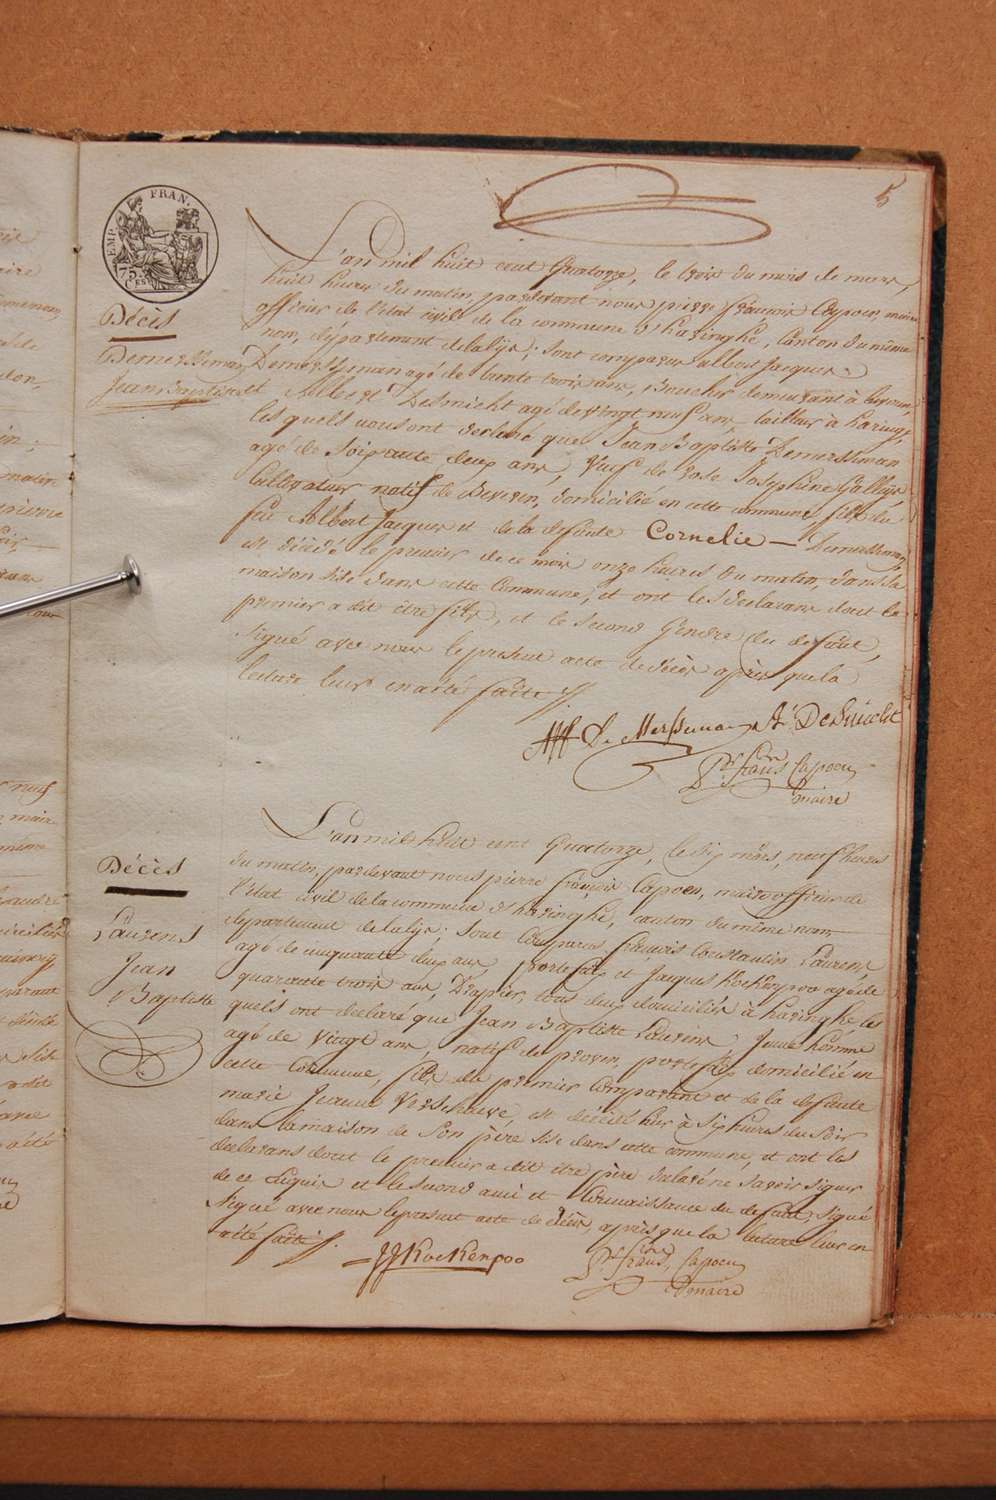 5
EMP. FRAN.
75
Décès
Demersseman
Jean Baptiste
L'an mil huit cent Quatorze, le trois du mois de mars,
huit heures du matin, pardevant nous pierre françois Capoen, maire
officier de l'état civil de la commune d'haringhe, canton du même
nom, département de la lys; sont comparus albert Jacques
Demerssman agé de trente trois ans, Boucher demeurant à
et Albert Desmicht agé de vingt neuf ans, tailleur à haringe,
lesquels nous ont declaré que Jean Baptiste Demerssman
agé de Soixante deux ans, veuf de rose Joséphine
Cultivateur natif de Beveren, domicilié en cette commune, fils de
feu Albert Jacques et de la defunte Cornelie — Demerssman,
est décédé le premier de ce mois onze heures du matin, dans sa
maison sise dans cette Commune; et ont les declarans dont le
premier a dit être fils, et le second Gendre du defunt,
Signé avec nous le present acte de décès après que la
lecture leur en a été faite
De Merssman A: DeSmicht
Pre frans Capoen
maire
Décès
Laurens
Jean
Baptiste
L'an mil huit cent Quatorze, le Six mars, neuf heures
du matin, pardevant nous pierre françois Capoen, maire officier de
l'état civil de la commune d'haringhe, canton du même nom
département de la lys; sont Comparus françois Constantin Laurens,
agé de cinquante deux ans, portefaix et Jacques Kockenpoo agé de
quarante trois ans, Drapier, tous deux domiciliés à haringhe, les
quels ont declaré que Jean Baptiste Laurens Jeune homme
agé de vingt ans, natif de proven, portefaix domicilié en
cette Commune, fils du premier Comparant et de la defunte
marie Jeanne Verscheure, est décédé hier à Six heures du Soir
dans la maison de Son père Sise dans cette commune, et ont les
declarans dont le premier a dit être père déclaré ne Savoir Signer
de ce Enquis et le Second ami et Connaissance du defunt, Signé
Signé avec nous le present acte de décès, après que la lecture leur en
a été faite
JJ Kockenpoo
Pre frans Capoen
maire